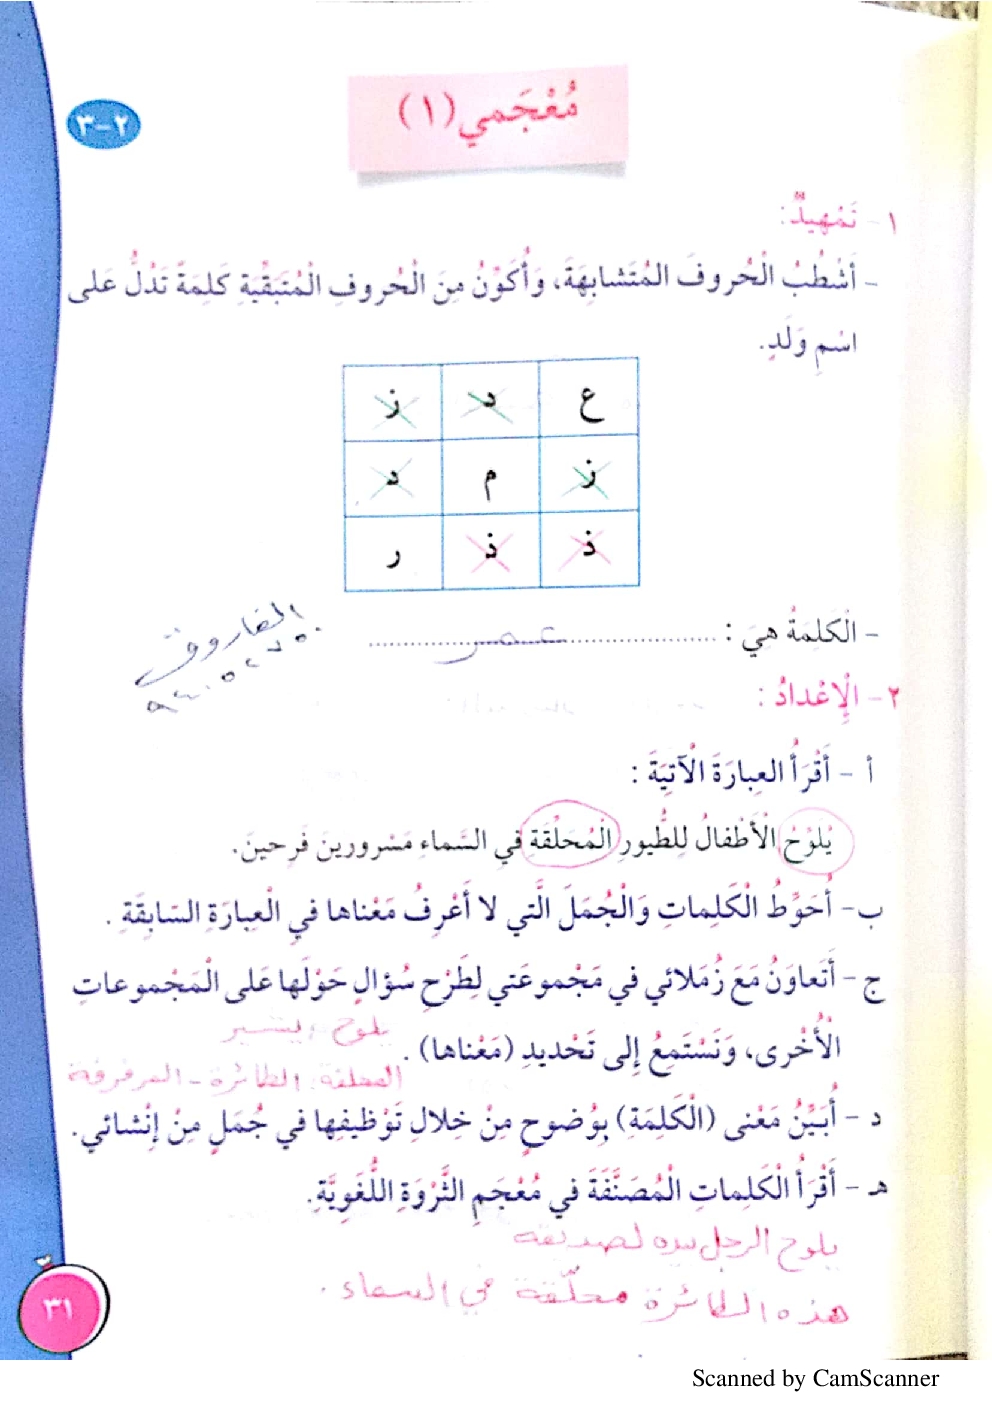 مُعْجَمي (١)
٢-٣
١- تَمْهيدٌ:
- أَشْطُبُ الْحُروفَ المُتَشابِهَةَ، وَأُكَوِّنُ مِنَ الْحُروفِ الْمُتَبَقِّيَةِ كَلِمَةً تَدُلُّ عَلى
اسْمِ وَلَدٍ.
ع د ز
ز م د
ذ ذ ر
- الْكَلِمَةُ هِيَ : عمر
الفاروق
٢- الْإِعْدادُ :
أ - أَقْرَأُ العِبارَةَ الْآتِيَةَ :
يُلَوِّحُ الْأَطْفالُ لِلطُّيورِ الْمُحَلِّقَةِ في السَّماءِ مَسْرورينَ فَرِحينَ.
ب- أُحَوِّطُ الْكَلِماتِ وَالْجُمَلَ الَّتي لا أَعْرِفُ مَعْناها في الْعِبارَةِ السّابِقَةِ .
ج- أَتَعاوَنُ مَعَ زُمَلائي في مَجْموعَتي لِطَرْحِ سُؤالٍ حَوْلَها عَلى الْمَجْموعاتِ
يلوح : يشير
الْأُخْرى، وَنَسْتَمِعُ إِلى تَحْديدِ (مَعْناها) .
المحلقة : الطائرة - المرفرفة
د - أُبَيِّنُ مَعْنى (الْكَلِمَةِ) بِوُضوحٍ مِنْ خِلالِ تَوْظيفِها في جُمَلٍ مِنْ إِنْشائي.
هـ - أَقْرَأُ الْكَلِماتِ الْمُصَنَّفَةَ في مُعْجَمِ الثَّرْوَةِ اللُّغَوِيَّةِ.
يلوح الرجل بيده لصديقه
هذه الطائرة محلّقة في السماء .
٣١
Scanned by CamScanner